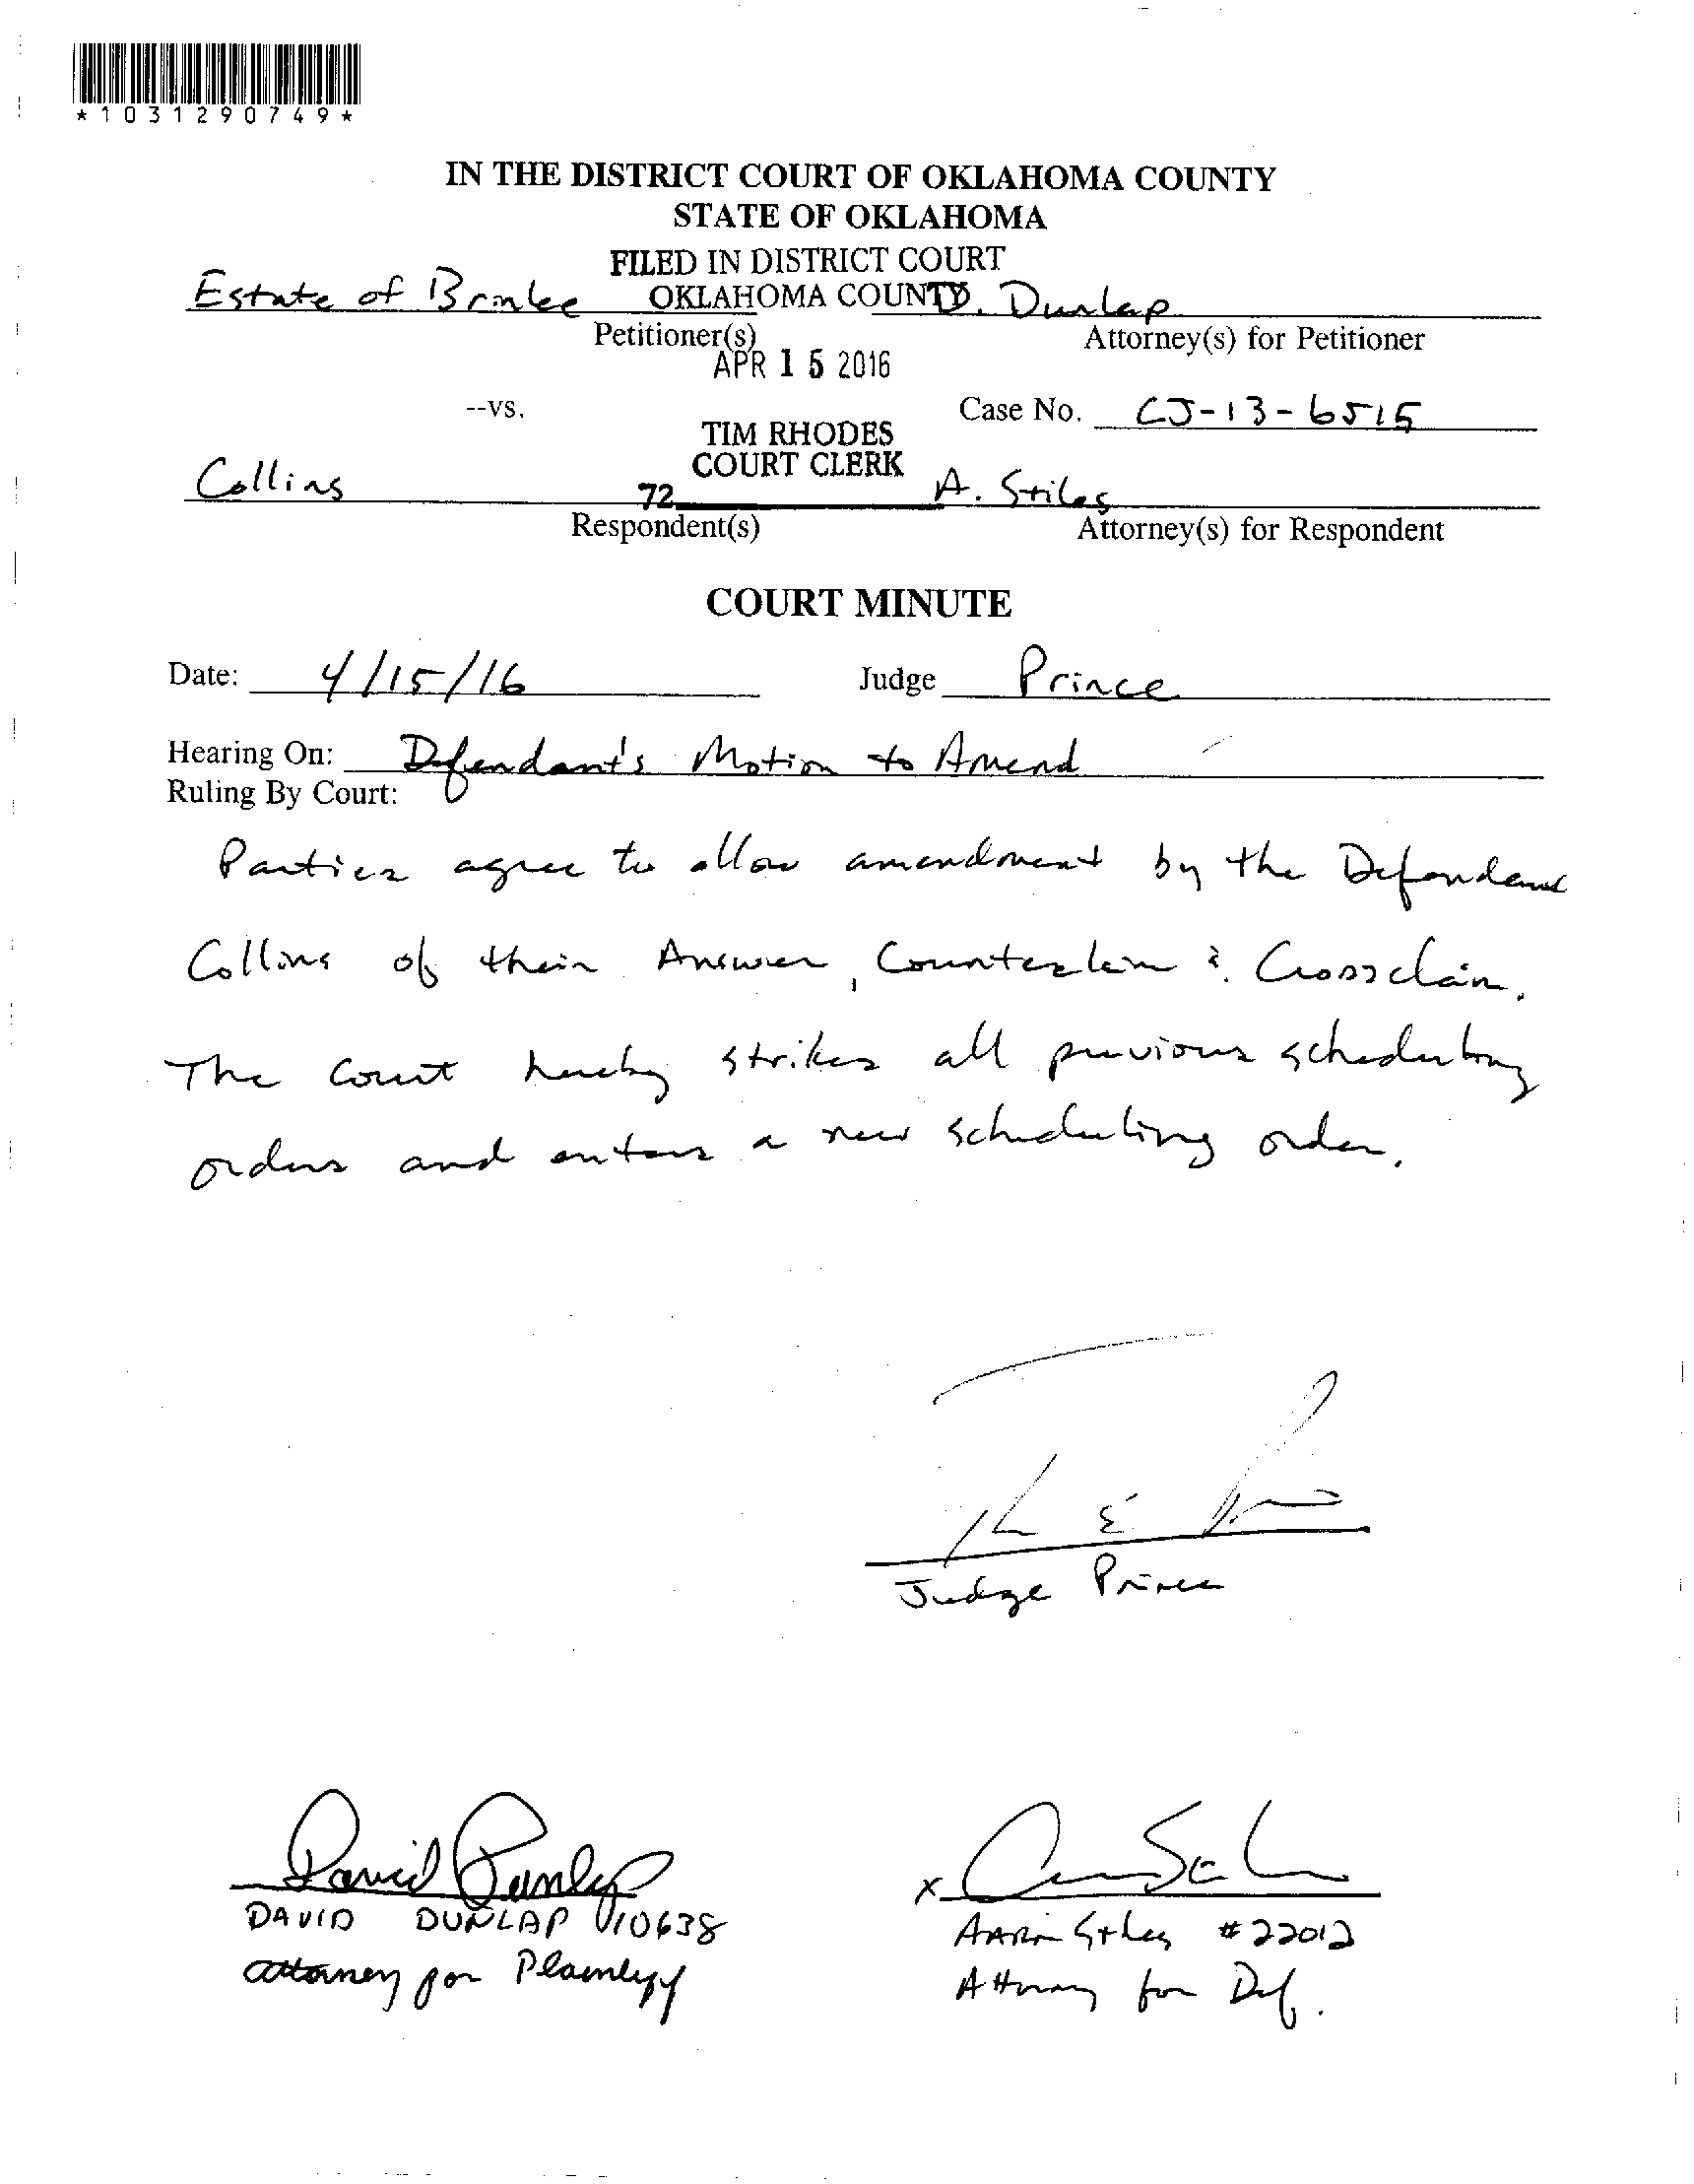 *1031290749*
IN THE DISTRICT COURT OF OKLAHOMA COUNTY
STATE OF OKLAHOMA
FILED IN DISTRICT COURT
OKLAHOMA COUNTY
Estate of Brinlee D. Dunlap
Petitioner(s) Attorney(s) for Petitioner
APR 15 2016
--vs. Case No. CJ-13-6515
TIM RHODES
COURT CLERK
Collins 72 A. Stiles
Respondent(s) Attorney(s) for Respondent
COURT MINUTE
Date: 4/15/16 Judge Prince
Hearing On: Defendant's Motion to Amend
Ruling By Court:
Parties agree to allow amendment by the Defendant
Collins of their Answer, Counterclaim & Crossclaim.
The Court hereby strikes all previous scheduling
orders and enters a new scheduling order.
Judge Prince
David Dunlap
DAVID DUNLAP 10638
Attorney for Plaintiff
x
Aaron Stiles #22012
Attorney for Def.